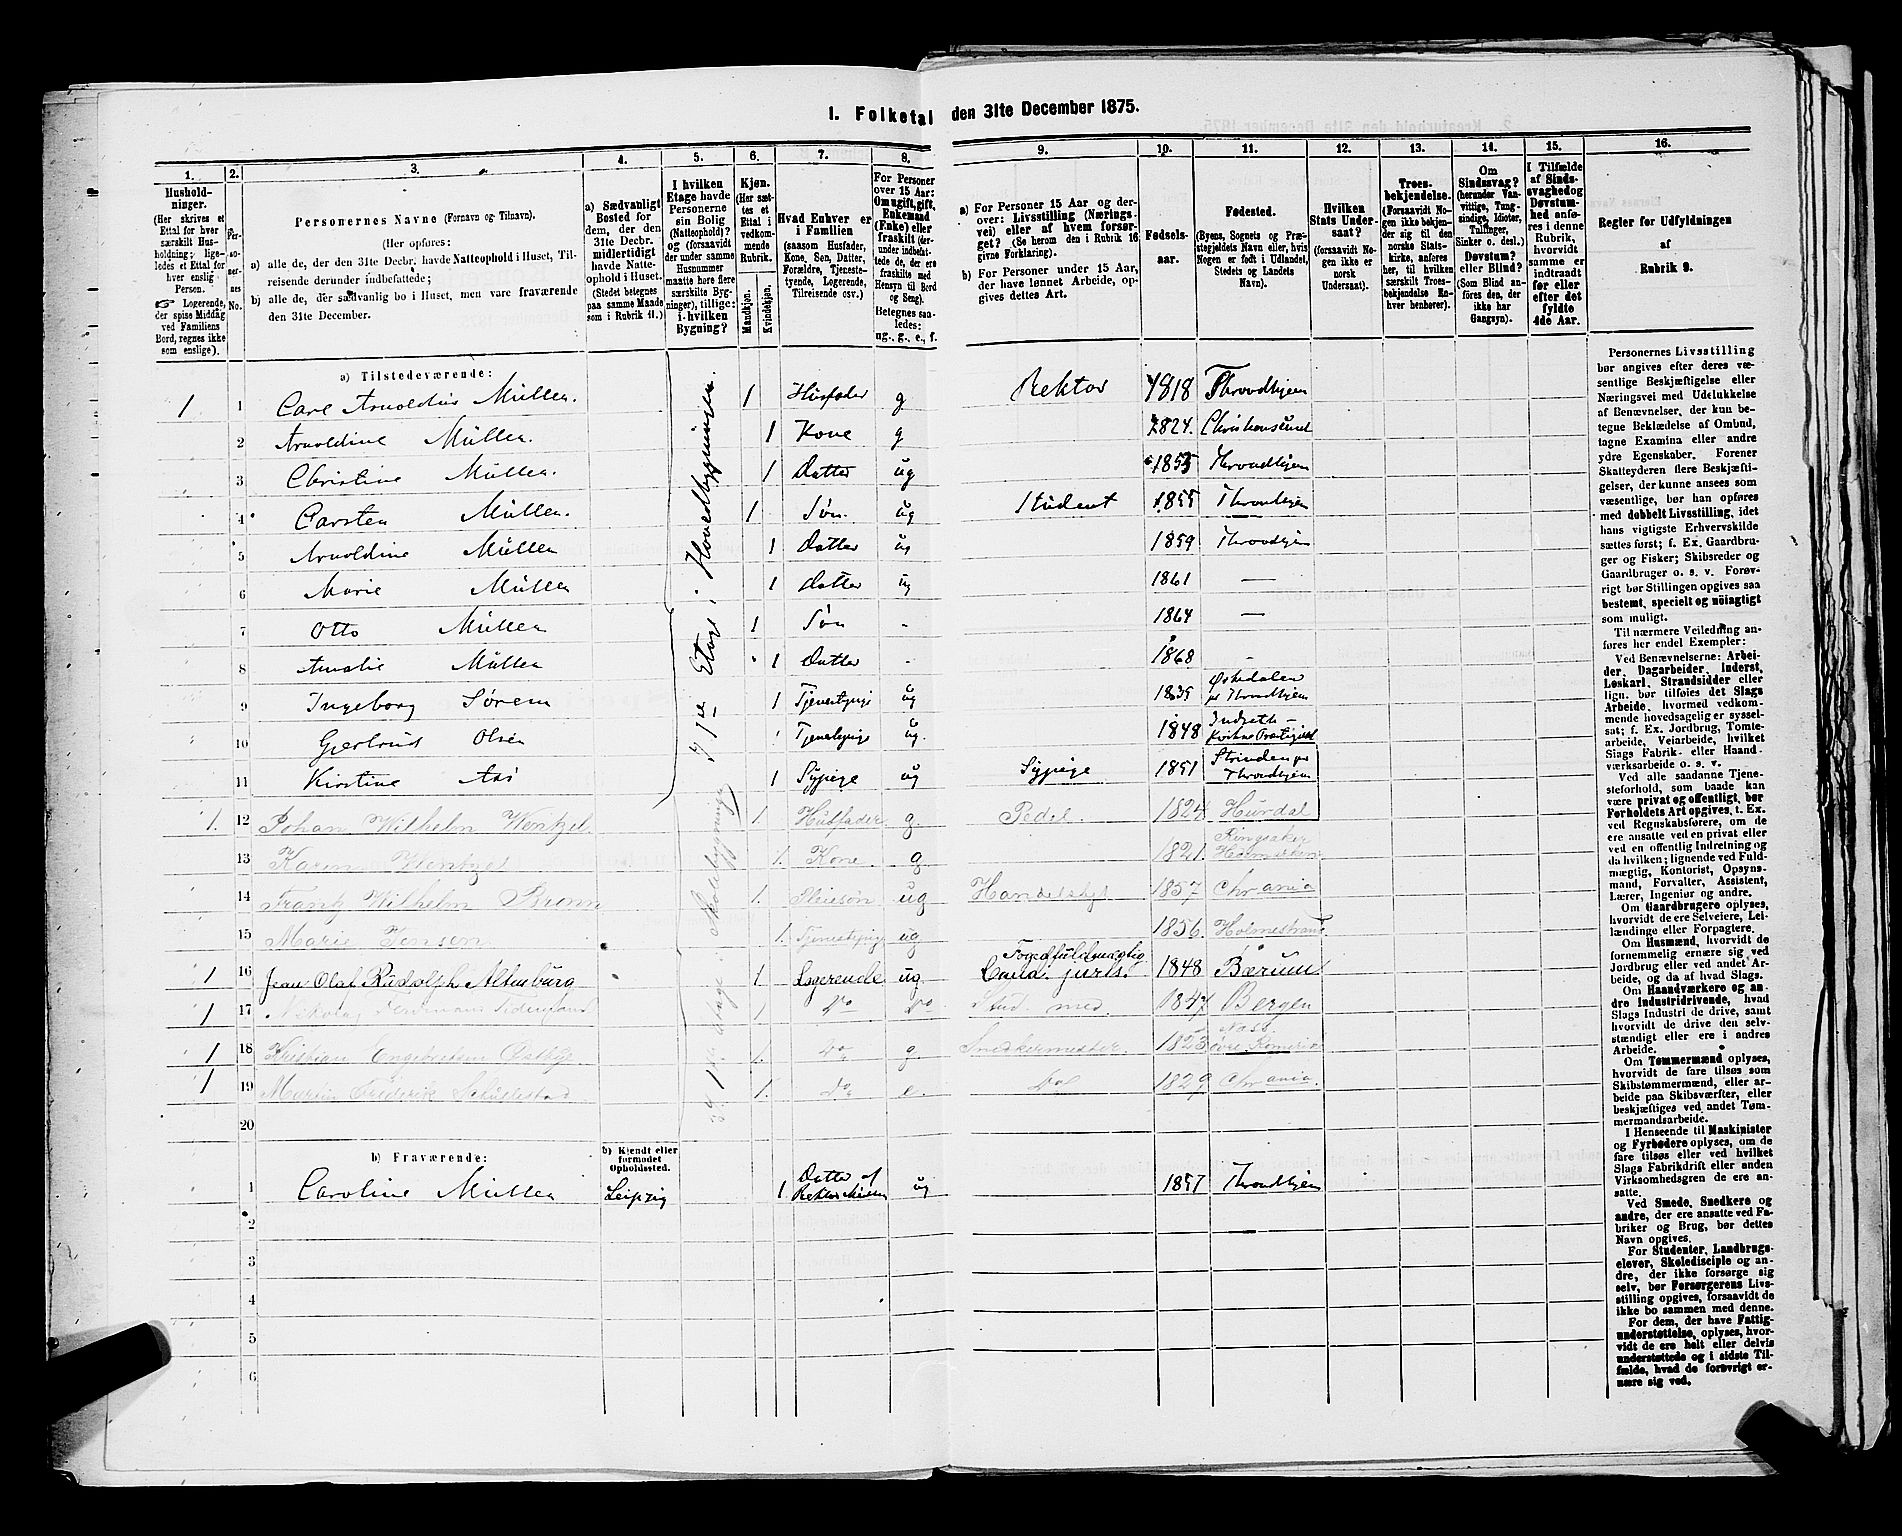 1. Folketal den 31te December 1875.
1. 2. 3. 4. 5. 6. 7. 8. 9. 10. 11. 12. 13. 14. 15. 16.
Hushold-
ninger.
(Her skrives et
Ettal for hver
særskilt Hus-
holdning; lige-
ledes et Ettal for
hver enslig
Person.
☞ Logerende,
der spise Middag
ved Familiens
Bord, regnes ikke
som enslige).
Per-
so-
ner-
nes
No.
Personernes Navne (Fornavn og Tilnavn).
(Her opføres:
a) alle de, der den 31te Decbr. havde Natteophold i Huset, Til-
reisende derunder indbefattede;
b) alle de, der sædvanlig bo i Huset, men vare fraværende
den 31te December.
a) Sædvanligt
Bosted for
dem, der den
31te Decbr.
midlertidigt
havde Natte-
ophold i Huset.
(Stedet betegnes
paa samme Maade
som i Rubrik 11.)
I hvilken
Etage havde
Personerne
sin Bolig
(Natteophold)?
og (forsaavidt
der under samme
Husnummer
maatte høre flere
særskilte Byg-
ninger), tillige:
i hvilken
Bygning?
Kjøn.
(Her sæt-
tes et
Ettal i
vedkom-
mende
Rubrik.
Mandkjøn.
Kvindekjøn.
Hvad Enhver er
i Familien
(saasom Husfader,
Kone, Søn, Datter,
Forældre, Tjeneste-
tyende, Logerende,
Tilreisende osv.)
For Personer
over 15 Aar:
Om ugift, gift,
Enkemand
(Enke) eller
fraskilt (der-
under indbefat-
tede de, der ere
fraskilte med
Hensyn til Bord
og Seng).
Betegnes saa-
ledes:
ug., g., e., f.
a) For Personer 15 Aar og der-
over: Livsstilling (Nærings-
vei) eller af hvem forsør-
get? (Se herom den i Rubrik 16
givne Forklaring).
b) For Personer under 15 Aar,
der have lønnet Arbeide, op-
gives dettes Art.
Fødsels-
aar.
Fødested.
(Byens, Sognets og Præ-
stegjeldets Navn eller, hvis
Nogen er født i Udlandet,
Stedets og Landets
Navn).
Hvilken
Stats Under-
saat?
(forsaavidt No-
gen ikke er
norsk
Undersaat).
Troes-
bekjendelse.
(Forsaavidt No-
gen ikke bekjen-
der sig til den
norske Stats-
kirke, anføres
her, til hvilken
særskilt Troes-
bekjendelse En-
hver henhører).
Om
Sindssvag?
(herunder Van-
vittige, Tung-
sindige, Idioter,
Tullinger,
Sinker o. desl.)
Døvstum?
eller Blind?
(Som Blind an-
føres den, der
ikke har
Gangsyn).
I Tilfælde
af Sinds-
svaghed og
Døvstum-
hed anfø-
res i denne
Rubrik,
hvorvidt
samme er
indtraadt
før eller
efter det
fyldte
4de Aar.
Regler for Udfyldningen
af
Rubrik 9.
a) Tilstedeværende:
1 1 Carl Arnoldus Müller. 1 Husfader g Rektor 1818 Throndhjem
2 Arnoldine Müller. 1 Kone g 1824. Christiansund
3 Christine Müller. 1 Datter ug 1853 Throndhjem
4 Carsten Müller. 1 Søn. ug Student 1855 Throndhjem
5 Arnoldine Müller 1 Datter ug 1859 Throndhjem
6 Marie Müller 1 Datter ug 1861 —
7 Otto Müller 1 Søn - 1864 —
8 Amalie Müller 1 Datter - 1868 -
9 Ingeborg Sørem 1 Tjenestepige ug 1835 pr Throndhjem
10 Gjertrud Olsen 1 Tjenestepige ug. 1848 Indseth - Kvikne Præstegjeld
11 Kirstine Aas 1 Sypige ug Sypige 1851 Strinden pr Throndhjem
i Hovedbygningen.
1. 12 Johan Wilhelm Wentzel. 1. Husfader. g. Pedel. 1824. Hurdal
13 Karen Wentzel 1. Kone. g 1821.
14 Frantz Wilhelm Brown 1. Pleiesøn ug Handelsbet 1857 Chrania
15 Marie Jensen 1. Tjenestepige ug 1856. Holmestrand
1 16 Jean Olaf Rudolph Altenburg 1 Logerende ug. Fogedfuldmægtig Cand. juris. 1848 Bærum
1 17 Nikolay Ferdinand 1 do do Stud. med. 1847 Bergen
1 18 Kristian Engebretsen 1. do g. Snedkermester 1825
1 19 Frederik 1. do e. 1829 Chrania.
20
b) Fraværende:
b) Kjendt eller
formodet
Opholdssted.
1 Caroline Müller Leipzig 1 Datter af Rektor Müller ug 1857 Throndhjem
2
3
4
5
6
Personernes Livsstilling
bør angives efter deres væ-
sentlige Beskjæftigelse eller
Næringsvei med Udelukkelse
af Benævnelser, der kun be-
tegne Beklædelse af Ombud,
tagne Examina eller andre
ydre Egenskaber. Forener
Skatteyderen flere Beskjæfti-
gelser, der kunne ansees som
væsentlige, bør han opføres
med dobbelt Livsstilling, idet
hans vigtigste Erhvervskilde
sættes først; f. Ex. Gaardbru-
ger og Fisker; Skibsreder og
Gaardbruger o. s. v. Forøv-
rigt bør Stillingen opgives saa
bestemt, specielt og nøiagtigt
som muligt.
Til nærmere Veiledning an-
føres her endel Exempler:
Ved Benævnelserne: Arbei-
der, Dagarbeider, Inderst,
Løskarl, Strandsidder eller
lign. bør tilføies det Slags
Arbeide, hvormed vedkom-
mende hovedsagelig er syssel-
sat; f. Ex. Jordbrug, Tomte-
arbeide, Veiarbeide, hvilket
Slags Fabrik- eller Haand-
værksarbeide o. s. v.
Ved alle saadanne Tjene-
steforhold, som baade kan
være privat og offentligt, bør
Forholdets Art opgives, t. Ex.
ved Regnskabsførere, om de
ere ansatte ved en privat eller
ved en offentlig Indretning og
da hvilken; lignende ved Fuld-
mægtig, Kontorist, Opsyns-
mand, Forvalter, Assistent,
Lærer, Ingeniør og andre.
Om Gaardbrugere oplyses,
hvorvidt de ere Selveiere, Lei-
lændinge eller Forpagtere.
Om Husmænd, hvorvidt de
fornemmelig ernære sig ved
Jordbrug eller ved andet Ar-
beide, og da af hvad Slags.
Om Haandværkere og an-
dre Industridrivende, hvad
Slags Industri de drive, samt
hvorvidt de drive den selv-
stændigt eller ere i andres
Arbeide.
Om Tømmermænd oplyses,
hvorvidt de fare tilsøs som
Skibstømmermænd, eller ar-
beide paa Skibsværfter, eller
beskjæftiges ved andet Tøm-
mermandsarbeide.
I Henseende til Maskinister
og Fyrbødere oplyses, om de
fare tilsøs eller ved hvilket
Slags Fabrikdrift eller anden
Virksomhedsgren de ere an-
satte.
Ved Smede, Snedkere og
andre, der ere ansatte ved Fa-
briker og Brug, bør dettes
Navn opgives.
For Studenter, Landbrugs-
elever, Skoledisciple og an-
dre, der ikke forsørge sig
selv, bør Forsørgerens Livs-
stilling opgives, forsaavidt de
ikke bo sammen med denne.
For dem, der have Fattig-
understøttelse, oplyses, hvor-
vidt de ere helt eller delvis
understøttede og i sidste Til-
fælde, hvad de forøvrigt er-
nære sig ved.